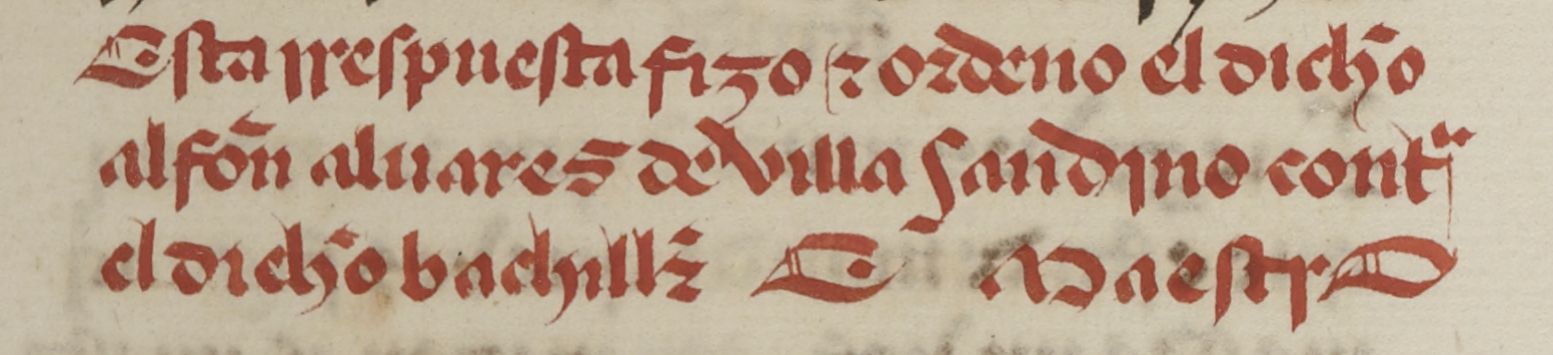 Esta rrespuesta fizo ⁊ ordeno el dicho
alfon̄ aluares de villa sandino contra
el dicho bachiller e Maestro